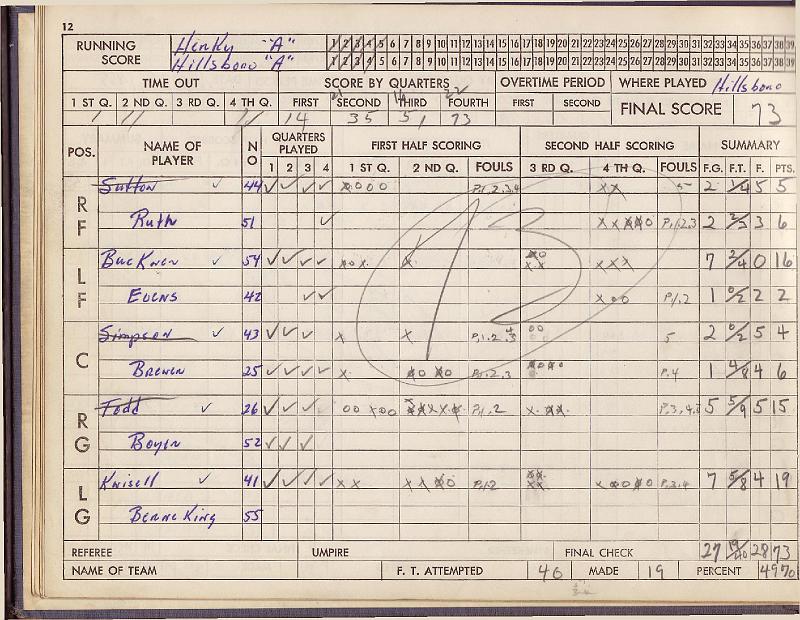 12
RUNNING SCORE Henky "A" 1 2 3 4 5 6 7 8 9 10 11 12 13 14 15 16 17 18 19 20 21 22 23 24 25 26 27 28 29 30 31 32 33 34 35 36 37 38 39
Hillsboro "A" 1 2 3 4 5 6 7 8 9 10 11 12 13 14 15 16 17 18 19 20 21 22 23 24 25 26 27 28 29 30 31 32 33 34 35 36 37 38 39
TIME OUT SCORE BY QUARTERS OVERTIME PERIOD WHERE PLAYED Hillsboro
1 ST Q. 2 ND Q. 3 RD Q. 4 TH Q. FIRST SECOND THIRD FOURTH FIRST SECOND FINAL SCORE 73
14 35 51 73
POS. NAME OF PLAYER NO QUARTERS PLAYED FIRST HALF SCORING SECOND HALF SCORING SUMMARY
1 2 3 4 1 ST Q. 2 ND Q. FOULS 3 RD Q. 4 TH Q. FOULS F.G. F.T. F. PTS.
RF Sutton 44 P.1.2.3.4 5 2 1/4 5 5
Ruth 51 P.1.2.3 2 2/3 3 6
LF 54 7 2/4 0 16
Evens 42 P.1.2 1 0/2 2 2
C Simpson 43 P.1.2.3 4 5 2 0/2 5 4
Brewer 25 P.1.2.3 P.4 1 4/8 4 6
RG Todd 26 P.1.2 P.3.4.5 5 5/9 5 15
Boyer 52
LG Knisell 41 P.1.2 P.3.4 7 5/8 4 19
Berne King 55
73
REFEREE UMPIRE FINAL CHECK 27 19/40 28 73
NAME OF TEAM F. T. ATTEMPTED 40 MADE 19 PERCENT